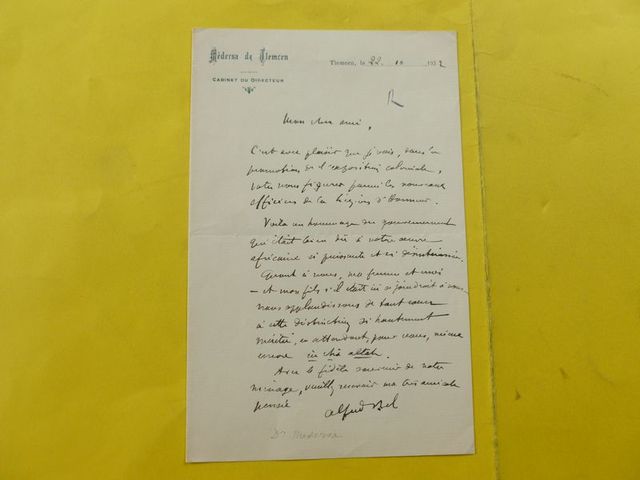 Médersa de Tlemcen
CABINET DU DIRECTEUR
Tlemcen, le 22 10 1932
R
Mon cher ami,
C'est avec plaisir que je vois, dans la
promotion de l'exposition coloniale,
votre nom figurer parmi les nouveaux
officiers de la Légion d'Honneur.
Voilà un hommage du gouvernement
qui était bien dû à votre œuvre
africaine si puissante et si désintéressée.
Quant à nous, ma femme et moi
– et mon fils s'il était ici se joindrait à nous –
nous applaudissons de tout cœur
à cette distinction si hautement
méritée, en attendant, pour vous, mieux
encore in châ allah.
Avec le fidèle souvenir de notre
ménage, veuillez recevoir ma très amicale
pensée
Alfred Bel
Dr Medersa